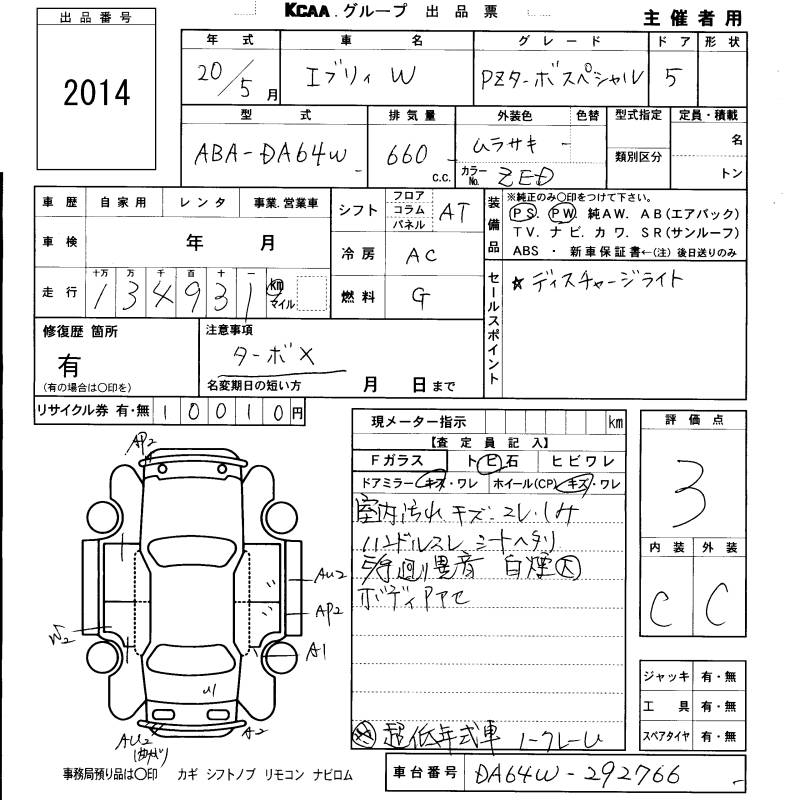 KCAA グループ 出品票
主催者用
出品番号
2014
年式 車名 グレード ドア 形状
20/5月 エブリィW PZターボスペシャル 5
型式 排気量 外装色 色替 型式指定 定員・積載
ABA-DA64W 660 c.c. ムラサキ - 類別区分 名
カラーNo. ZED トン
車歴 自家用 レンタ 事業.営業車
シフト フロア コラム パネル AT
装備品
※純正のみ〇印をつけて下さい。
PS. PW. 純AW. AB(エアバック)
TV. ナビ. カワ. SR(サンルーフ)
ABS ・ 新車保証書←(注)後日送りのみ
車検 年 月
冷房 AC
走行 十万 万 千 百 十 一
134931 km マイル
燃料 G
セールスポイント
☆ディスチャージライト
修復歴 箇所
有
(有の場合は〇印を)
注意事項
ターボX
名変期日の短い方 月 日まで
リサイクル券 有・無 10010円
現メーター指示 km
【査定員記入】
Fガラス トビ石 ヒビワレ
ドアミラー キズ・ワレ ホイール(CP) キズ・ワレ
室内汚れ キズ・コレ・しみ
ハンドルスレ シートヘタリ
異音 白煙大
ボディ
超低年式車
評価点
3
内装 外装
C C
ジャッキ 有・無
工具 有・無
スペアタイヤ 有・無
AP2
AU2
AP2
A1
W2
AU2
A2
事務局預り品は〇印 カギ シフトノブ リモコン ナビロム
車台番号 DA64W-292766